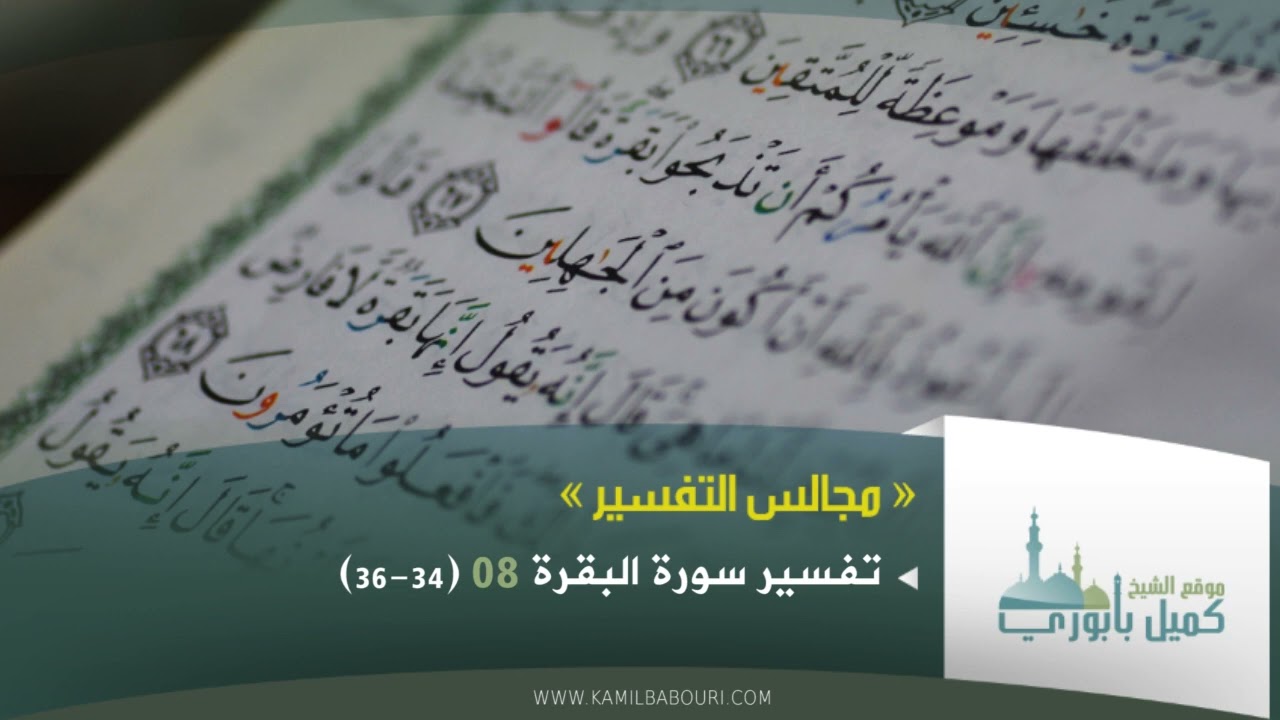 قردة خسئين
وما خلفها وموعظة للمتقين ٦٦
يأمركم أن تذبحوا بقرة قالوا
أكون من الجهلين ٦٧ قالوا
قال إنه يقول إنها بقرة لا فارض
فافعلوا ما تؤمرون ٦٨
قال إنه يقول
« مجالس التفسير »
تفسير سورة البقرة 08 (34-36)
موقع الشيخ
كميل بابوري
WWW.KAMILBABOURI.COM